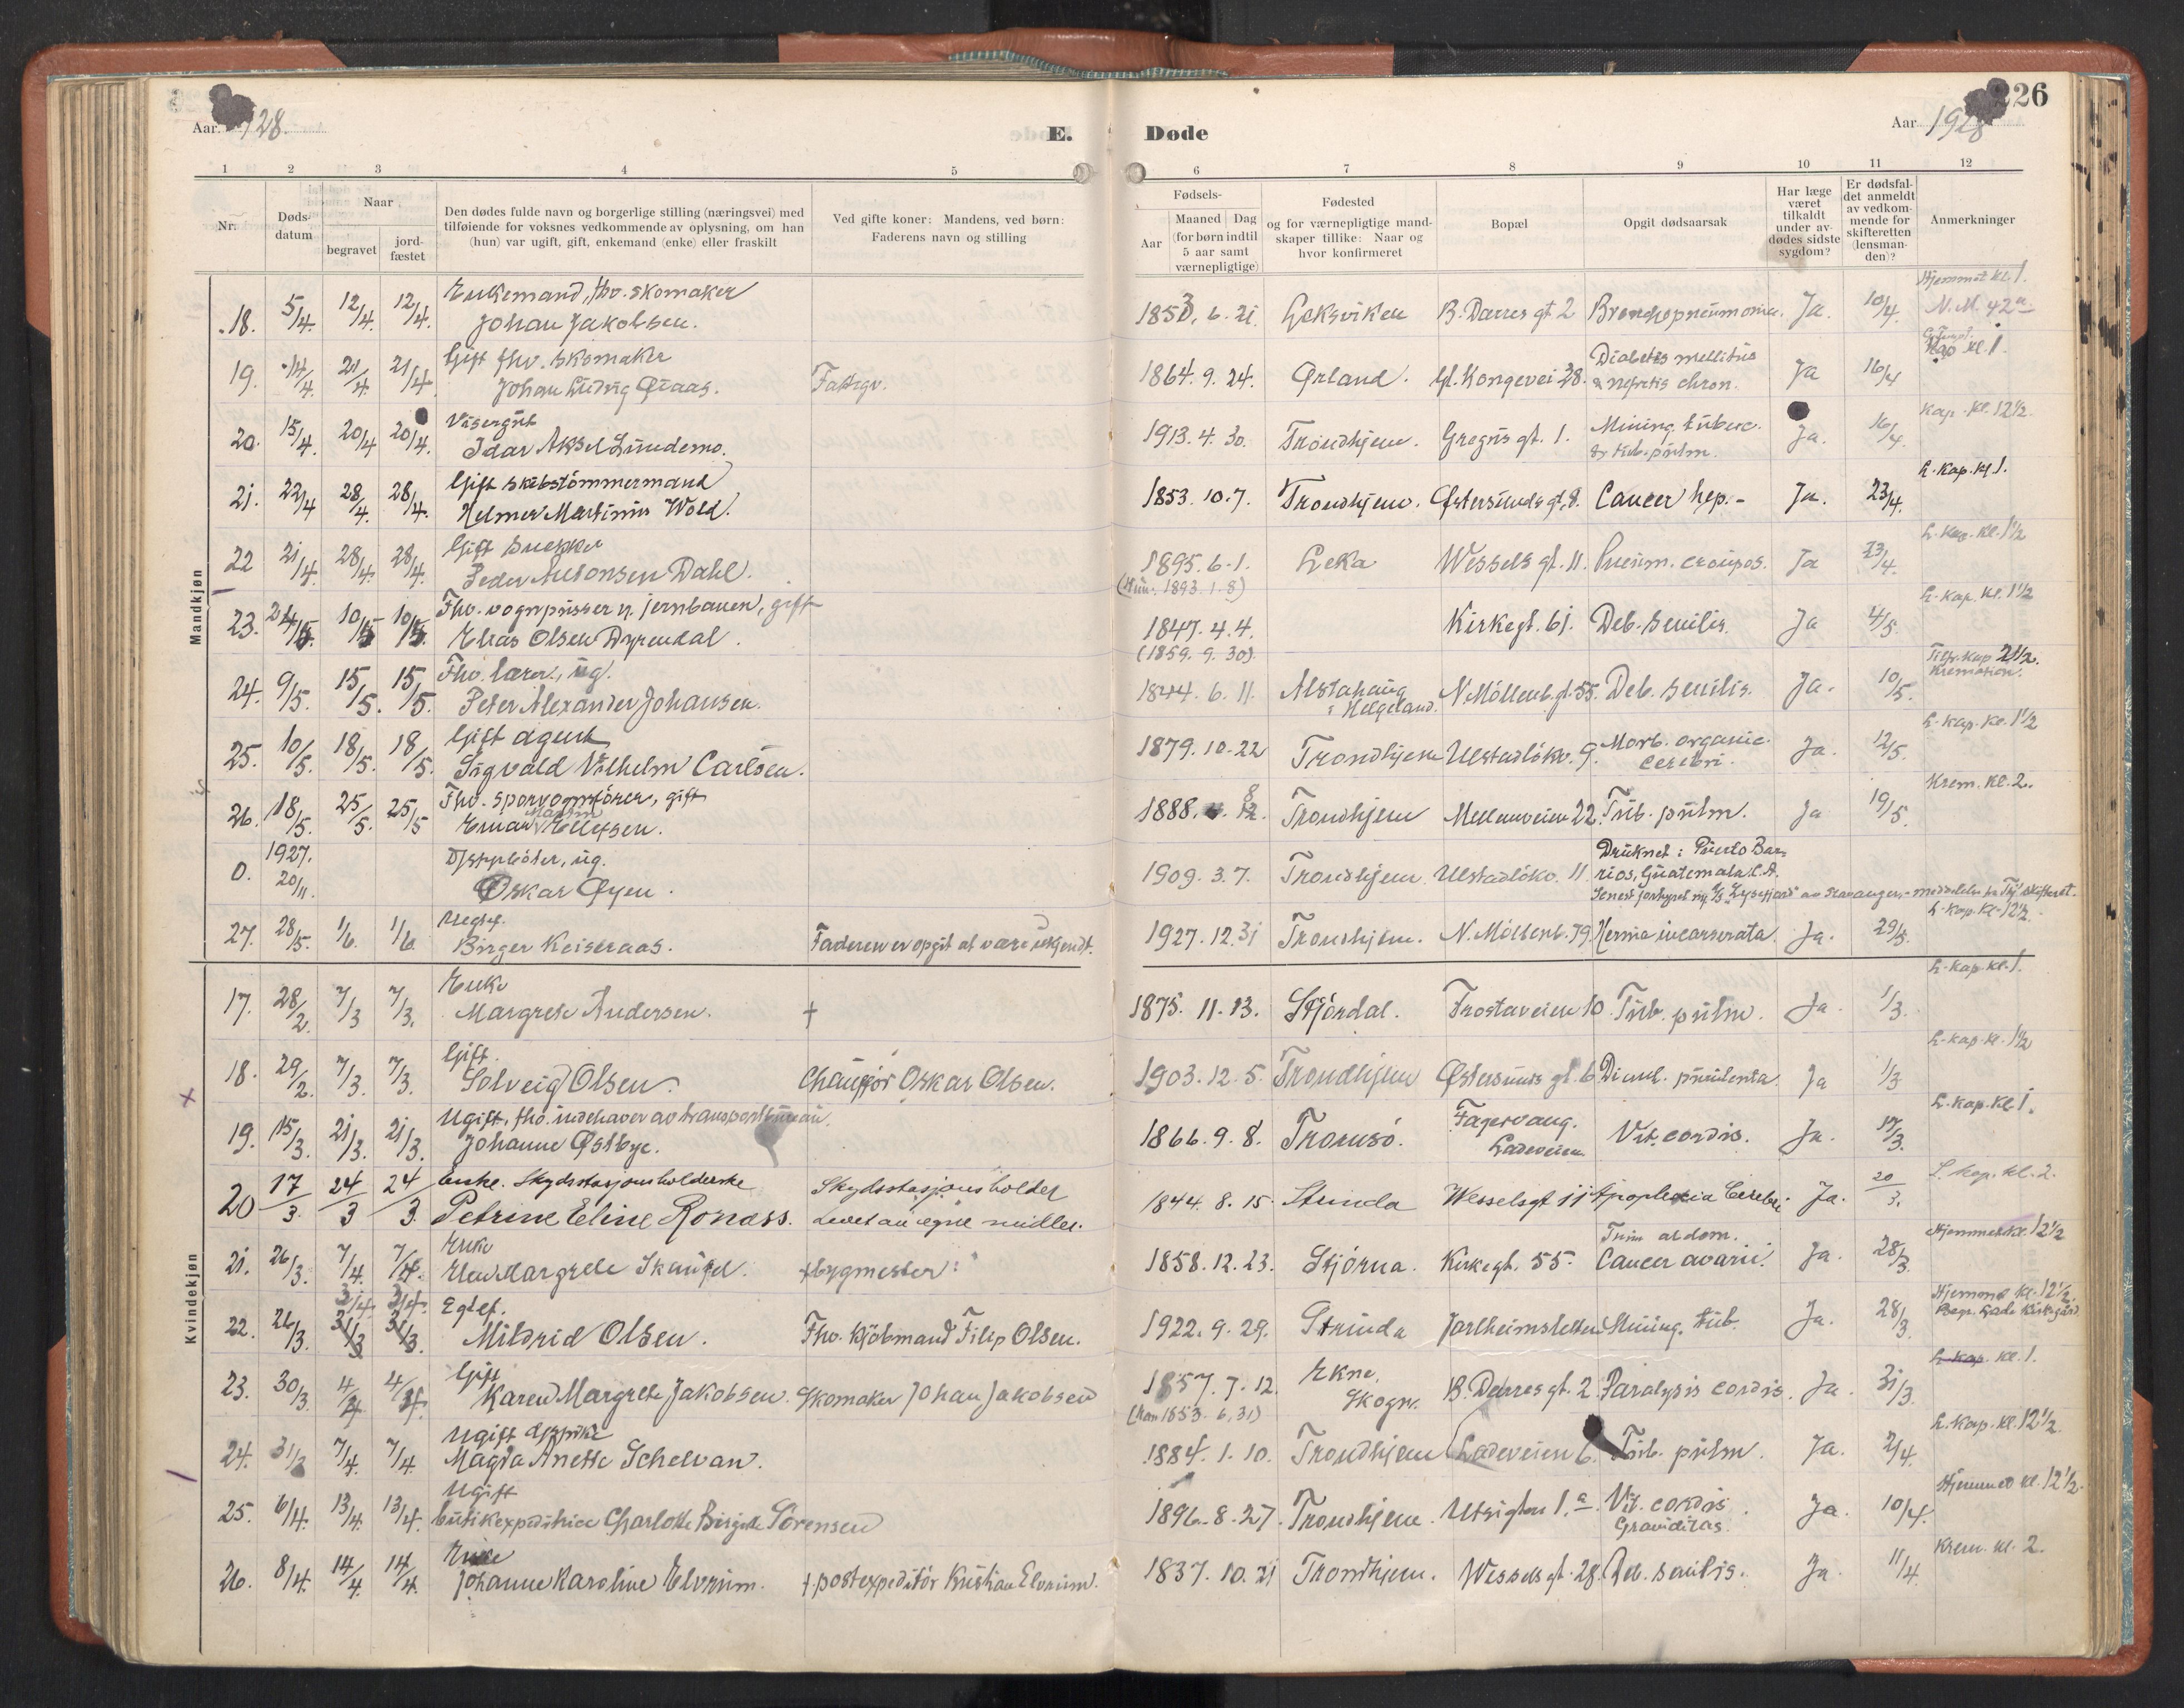 226
Aar 1928.
E. Døde
Aar 1928
1 2 3 4 5 6 7 8 9 10 11 12
Nr.
Døds-
datum
Naar
begravet
jord-
fæstet
Den dødes fulde navn og borgerlige stilling (næringsvei) med
tilføiende for voksnes vedkommende av oplysning, om han
(hun) var ugift, gift, enkemand (enke) eller fraskilt
Ved gifte koner: Mandens, ved børn:
Faderens navn og stilling
Fødsels-
Aar
Maaned Dag
(for børn indtil
5 aar samt
værnepligtige)
Fødested
og for værnepligtige mand-
skaper tillike: Naar og
hvor konfirmeret
Bopæl
Opgit dødsaarsak
Har læge
været
tilkaldt
under av-
dødes sidste
sygdom?
Er dødsfal-
det anmeldt
av vedkom-
mende for
skifteretten
(lensman-
den)?
Anmerkninger
Mandkjøn
Enkemand, fhv. skomaker Hjemmet kl. 1.
18. 5/4. 12/4. 12/4. Johan Jakobsen. 1853. 6. 21. Leksviken B. Darres gt 2 Bronchopneumonia. Ja. 10/4. N.M. 42a
Gift fhv. skomaker Diabetes mellitus Kap kl. 1.
19. 14/4. 21/4. 21/4. Johan Ludvig Qvaas. Fattigv. 1864. 9. 24. Ørland. Gl. Kongevei 28. & nefritis chron. Ja 16/4
Visergut Mening. tuberc. Kap. kl. 12½.
20. 15/4. 20/4 20/4. Idar Aksel Lundemo. 1913. 4. 30. Trondhjem. Gregus gt. 1. & tub. pulm. Ja. 16/4.
Gift skibstömmermand L. Kap. kl. 1.
21. 22/4 28/4. 28/4. Helmer Martinius Wold. 1853. 10. 7. Trondhjem. Östersunds gt. 8. Cancer hep. - Ja. 23/4.
Gift snekker L. Kap. kl. 1½
22 21/4. 28/4. 28/4. Peder Antonsen Dahl. 1895. 6. 1. Leka Wessels gt. 11. Pneum. croupos. Ja 23/4.
(Hun. 1893. 1. 8)
Fhv. vognpusser v. jernbanen, gift L. Kap. kl. 1½
23. 10/5 10/5 Elias Olsen Dyrendal. 1847. 4. 4. Kirkegt. 61. Deb. senilis. Ja 4/5
(1859. 9. 30).
Fhv. lærer, ug. Tilfr. kap 2½.
24. 9/5. 15/5. 15/5. Peter Alexander Johansen. 1844. 6. 11. Alstahaug N. Möllenb. gt. 55. Deb. senilis. Ja. 10/5. Kremation.
i Helgeland.
Gift agent L. kap. kl. 1½
25. 10/5. 18/5. 18/5. Sigvald Vilhelm Carlsen. 1879. 10. 22 Trondhjem Ulstadlökv. 9. Morb. organic. Ja. 12/5.
cerebri.
Fhv. sporvognsförer, gift Krem. kl. 2.
26. 18/5. 25/5. 25/5 Einar Martin Ellefsen. 1888. 8 Trondhjem Mellemveien 22. Tub. pulm. Ja 19/5.
1927. Druknet i Puerto Bar-
0. 20/11 Oskar Øyen. 1909. 3. 7. Trondhjem. Ulstadlökv. 11 rios, Guatemala C.A.
Senest forhyret m. "Lysefjord" av Stavanger, - meddelelse fra Thj. skifteret.
Uegtef. L. Kap. kl. 12½.
27. 28/5. 1/6. 1/6 Birger Keiseraas. Faderen er opgit at være ukjendt. 1927. 12. 31 Trondhjem. N. Möllenb. 79. Hernia incarserata. Ja. 29/5.
Kvindekjøn
Enke L. kap. kl. 1.
17. 28/2. 7/3 7/3. Margrete Andersen. † 1875. 11. 13. Stjördal. Frostaveien 10. Tub. pulm. Ja. 1/3.
Gift. L. kap. kl. 1½
18. 29/2. 7/3. 7/3. Solveig Olsen. Chaufför Oskar Olsen. 1903. 12. 5. Trondhjem Östersunds gt. 6 purulenta Ja 1/3
Ugift, fhv. indehaver av transportbureau. Fagervang. L. kap. kl. 1.
19. 15/3. 21/3. 21/3. Johanne Østbye. 1866. 9. 8. Tromsö. Ladeveien Vit. cordis. Ja. 17/3.
Enke. Skydsstasjonsholderske Skydsstasjonsholder L. kap. kl. 2.
20 17/3. 24/3 24/3. Petrine Eline Ronæss. Levet av egne midler. 1844. 8. 15. Strinda Wesselsgt 11 Apoplexia Cerebri. Ja. 20/3.
Enke Tum. abdom. Hjemmet kl. 12½
21. 26/3. 7/4. 7/4. Elen Margrete Skaufel. † bygmester: 1858. 12. 23. Stjörna. Kirkegt. 55. Cancer ovarii. Ja. 28/3
3/4. 3/4. Egtef. Hjemmet kl. 12½.
22. 26/3. 31/3 31/3. Mildrid Olsen. Fhv. kjöbmand Filip Olsen. 1922. 9. 29. Strinda Jarlheimsletten Mening. tub. Ja. 28/3. Begr. Lade Kirkegård
Gift Ekne, L. kap. kl. 1.
23. 30/3. 4/4 4/4. Karen Margrete Jakobsen. Skomaker Johan Jakobsen 1857. 7. 12. Skogn. B. Darres gt. 2. Paralysis cordis. Ja. 31/3.
(Han 1853. 6. 31)
Ugift L. Kap. kl. 12½.
24. 31/3 7/4. 7/4. Magda Anette Schelvan. 1884. 1. 10. Trondhjem Ladeveien 6. Tub. pulm. Ja. 2/4.
Ugift Hjemmet kl. 12½.
25. 6/4. 13/4. 13/4. butikexpeditrice Charlotte Birgitte Sörensen 1896. 8. 27. Trondhjem. Utsigten 1.a Vit. cordis. Ja. 10/4.
Graviditas.
Enke Krem. kl. 2.
26. 8/4. 14/4. 14/4. Johanne Karoline Elvrum. † postexpeditör Kristian Elvrum. 1837. 10. 21 Trondhjem. Wessels gt. 28. Deb. senilis. Ja. 11/4.